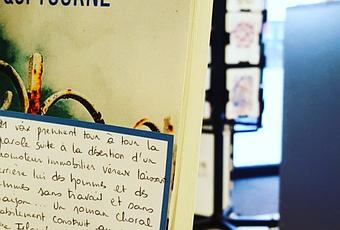 QUI TOURNE
21 voix prennent tour à tour la
parole suite à la désertion d'un
promoteur immobilier véreux laissant
derrière lui des hommes et des
femmes sans travail et sans
... Un roman choral
habilement construit